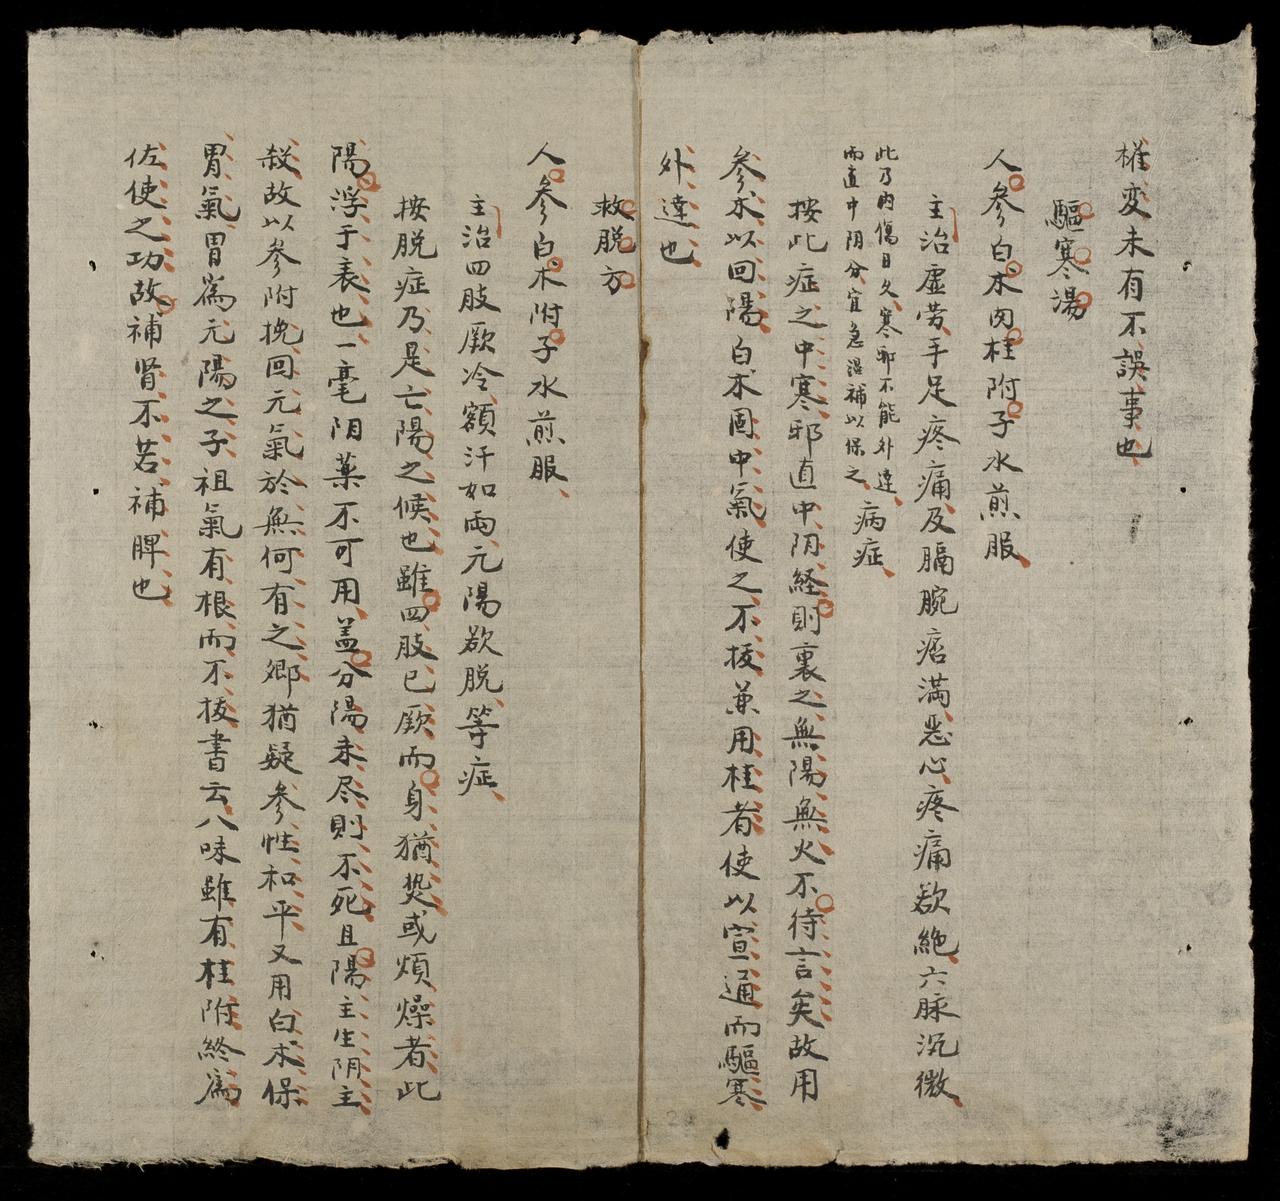 權变未有不誤事也
驅寒湯
人參白术肉桂附子水煎服
主治虛劳手足疼痛及膈腕痞満恶心疼痛欲絶六脉沉微
此乃内傷日久寒邪不能外達
而直中阴分宜急温補以保之
病症
按此症之中寒邪直中阴経則裏之無陽無火不待言矣故用
參术以回陽白术固中氣使之不拔兼用桂者使以宣通而驅寒
外達也
救脱方
人參白术附子水煎服
主治四肢厥冷額汗如雨元陽欲脱等症
按脱症乃是亡陽之候也雖四肢已厥而身猶热或煩燥者此
陽浮于表也一毫阴薬不可用盖分陽未尽則不死且陽主生阴主
殺故以參附挽回元氣於無何有之鄉猶疑參性和平又用白术保
胃氣胃為元陽之子祖氣有根而不拔書云八味雖有桂附終為
佐使之功故補肾不若補脾也